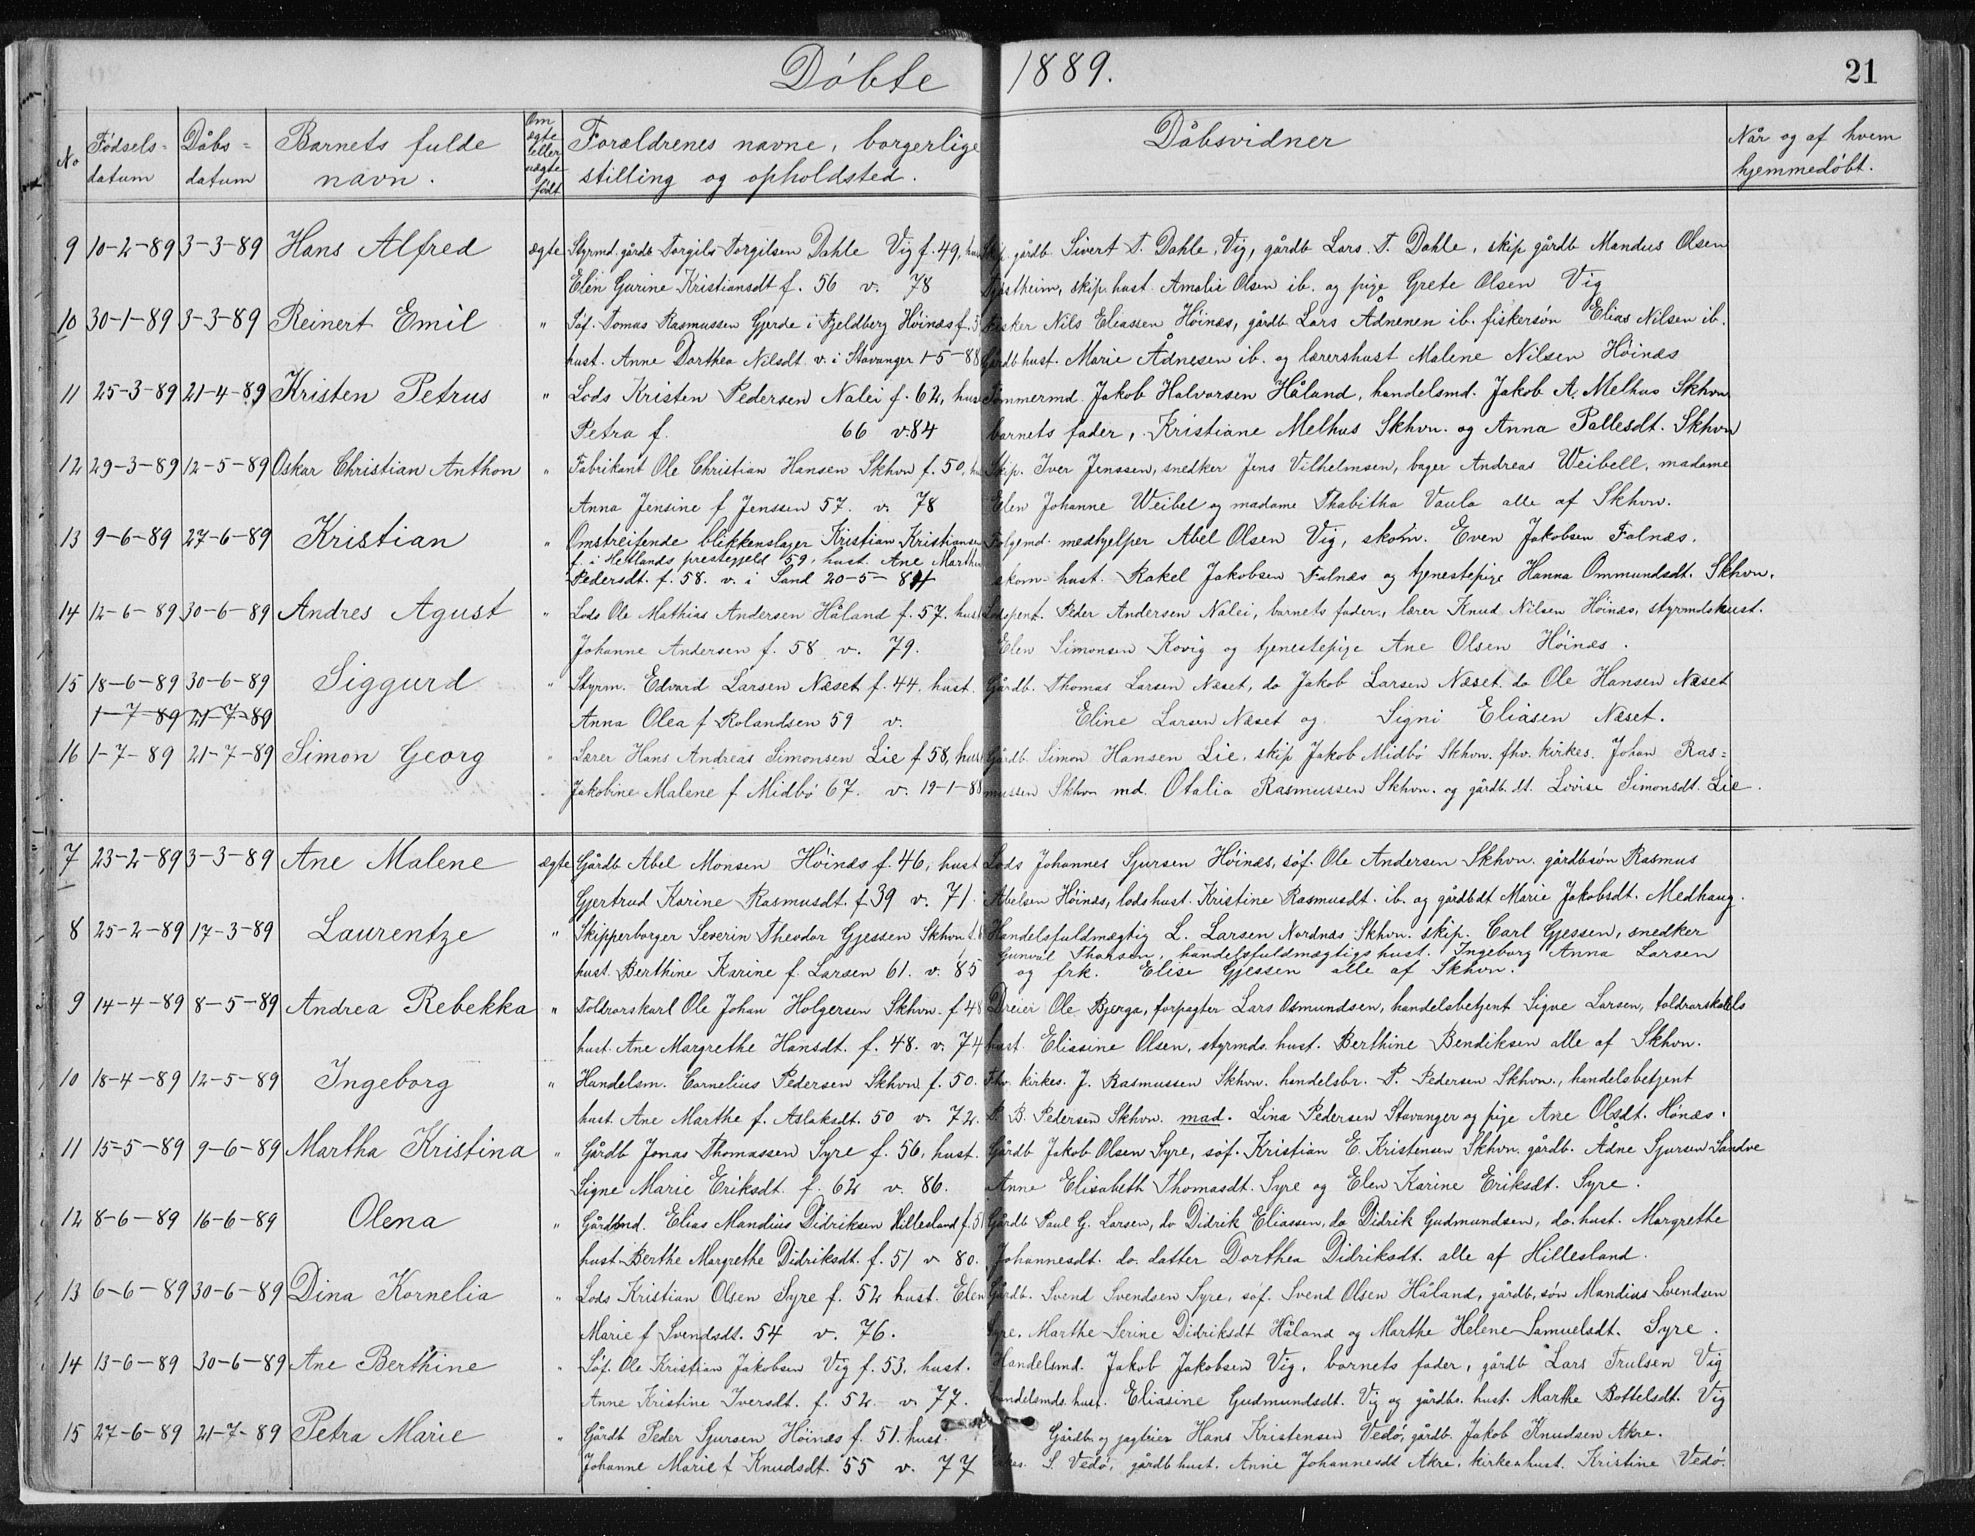 Døbte 1889. 21
No Fødsels- datum Dåbs- datum Barnets fulde navn. Om ægte eller uægte født Forældrenes navne, borgerlige stilling og opholdsted. Dåbsvidner Når og af hvem hjemmedøbt.
9 10-2-89 3-3-89 Hans Alfred ægte Styrmd. gårdb Torgils Torgilsen Dahle Vig f. 49, gårdb. Sivert T. Dahle, Vig, gårdb Lars T. Dahle, skip gårdb Mandius Olsen
Elen Gurine Kristiansdt f. 56 v. 78 skip. hust. Amalie Olsen ib. og pige Grete Olsen Vig
10 30-1-89 3-3-89 Reinert Emil " Søf. Tomas Rasmussen Gjerde i Fjeldberg Høinæs f. Nils Eliassen Høinæs, gårdb Lars Ådnenen ib. fiskersøn Elias Nilsen ib.
hust. Anne Dorthea Nilsdt. v. i Stavanger 1-5-88 Gårdb hust. Marie Ådnesen ib. og lærershust Malene Nilsen Høinæs
11 25-3-89 21-4-89 Kristen Petrus " Lods Kristen Pedersen Nalei f. 62, hust Tømmermd. Jakob Halvorsen Håland, handelsmd. Jakob A. Melhus Skhvn
Petra f. 66 v. 84 barnets fader, Kristiane Melhus Skhvn. og Anna Pallesdt. Skhvn
12 29-3-89 12-5-89 Oskar Christian Anthon " Fabrikant Ole Christian Hansen Skhvn f. 50, Skip. Iver Jenssen, snedker Jens Vilhelmsen, bager Andreas Weibell, madame
Anna Jensine f Jenssen 57. v. 78 Elen Johanne Weibel og madame Thabitha Vaula alle af Skhvn.
13 9-6-89 27-6-89 Kristian " Omstreifende blikkenslager Kristian Kristiansen Følgemd. medhjelper Abel Olsen Vig, skom. Even Jakobsen Falnæs.
f. i Hetlands prestegjeld 59, hust. Ane Marthe
Pedersdt. f. 58. v. i Sand 20-5-84 skom. hust. Rakel Jakobsen Falnæs og tjenestepige Hanna Ommundsdt. Skhvn.
14 12-6-89 30-6-89 Andres Agust " Lods Ole Mathias Andersen Håland f. 57. hust Lodspent. Peder Andersen Nalei, barnets fader, lærer Knud Nilsen Høinæs, styrmdshust.
Johanne Andersen f. 58 v. 79. Elen Simonsen Kovig og tjenestepige Ane Olsen Høinæs.
15 18-6-89 30-6-89 Siggurd " Styrm. Edvard Larsen Næset f. 44. hust. Gårdb. Thomas Larsen Næset, do Jakob Larsen Næset. do Ole Hansen Næset
1-7-89 21-7-89 Anna Olea f Rolandsen 59 v. Eline Larsen Næset og Signi Eliasen Næset.
16 1-7-89 21-7-89 Simon Georg " Lærer Hans Andreas Simonsen Lie f 58, hust Gårdb. Simon Hansen Lie, skip Jakob Midbø Skhvn. fhv. kirkes. Johan Ras=
Jakobine Malene f Midbø 67. v. 19-1-88 mussen Skhvn md. Otalia Rasmussen Skhvn. og gårdb. dt. Lovise Simonsdt. Lie.
7 23-2-89 3-3-89 Ane Malene ægte Gårdb Abel Monsen Høinæs f. 46, hust Lods Johannes Sjursen Høinæs, søf. Ole Andersen Skhvn. gårdbsøn Rasmus
Gjertrud Karine Rasmusdt. f 39 v. 71. Abelsen Høinæs, lodshust. Kristine Rasmusdt. ib. og gårdbdt Marie Jakobsdt. Medhaug.
8 25-2-89 17-3-89 Laurentze " Skipperborger Severin Theodor Gjessen Skhvn Handelsfuldmægtig L. Larsen Nordnæs Skhvn. skip. Carl Gjessen, snedker
Gunval Thorsen, handelsfuldmægtigs hust. Ingeborg Anna Larsen
hust. Berthine Karine f. Larsen 61. v. 85 og frk. Elise Gjessen alle af Skhvn.
9 14-4-89 8-5-89 Andrea Rebekka " Toldrorskarl Ole Johan Holgersen Skhvn. f 48 Dreier Ole Bjerga, forpagter Lars Osmundsen, handelsbetjent Signe Larsen, toldrorskarls
hust. Ane Margrethe Hansdt. f. 48. v. 74 hust. Eliasine Olsen, styrmds. hust. Berthine Bendiksen alle af Skhvn.
10 18-4-89 12-5-89 Ingeborg " Handelsm. Cornelius Pedersen Skhvn f. 50. Fhv. kirkes. J. Rasmussen Skhvn. handelsbr. P. Pedersen Skhvn., handelsbetjent
hust. Ane Marthe f. Aslaksdt. 50 v. 72. P. B. Pedersen Skhvn. mad. Lina Pedersen Stavanger og pige Ane Olsdt. Hönæs.
11 15-5-89 9-6-89 Martha Kristina " Gårdb Jonas Thomassen Syre f. 56, hust. Gårdb Jakob Olsen Syre, søf. Kristian E. Kristensen Skhvn. gårdb. Ådne Sjursen Sandve
Signe Marie Eriksdt. f. 62 v. 86. Anne Elisabeth Thomasdt. Syre og Elen Karine Eriksdt. Syre.
12 8-6-89 16-6-89 Olena " Gårdmd. Elias Mandius Didriksen Hillesland f. 51 Gårdb Paul G. Larsen, do Didrik Eliassen, do Didrik Gudmundsen, do. hust. Margrethe
hust. Berthe Margrethe Didriksdt. f. 51 v 80. Johannesdt. do. datter Dorthea Didriksdt. alle af Hillesland.
13 6-6-89 30-6-89 Dina Kornelia " Lods Kristian Olsen Syre f. 52 hust. Elen Gårdb. Svend Svendsen Syre, søf. Svend Olsen Håland, gårdb. søn Mandius Svendsen
Marie f Svendsdt. 54 v. 76. Syre. Marthe Serine Didriksdt Håland og Marthe Helene Samuelsdt. Syre.
14 13-6-89 30-6-89 Ane Berthine " Søf. Ole Kristian Jakobsen Vig f. 53. hust. Handelsmd. Jakob Jakobsen Vig, barnets fader, gårdb Lars Trulsen Vig
Anne Kristine Iversdt. f. 52 v. 77. handelsmds. hust. Eliasine Gudmundsdt. Vig og gårdbs. hust. Marthe Bottelsdt. Vig
15 27-6-89 21-7-89 Petra Marie " Gårdb Peder Sjursen Høinæs f. 51. hust. Gårdb. og jagteier Hans Kristensen Vedø, gårdb. Jakob Knudsen Akre.
Johanne Marie f Knudsdt. 55 v. 77 S. Vedø, gårdb hust. Anne Johannesdt Akre, kirkes hust. Kristine Vedø.